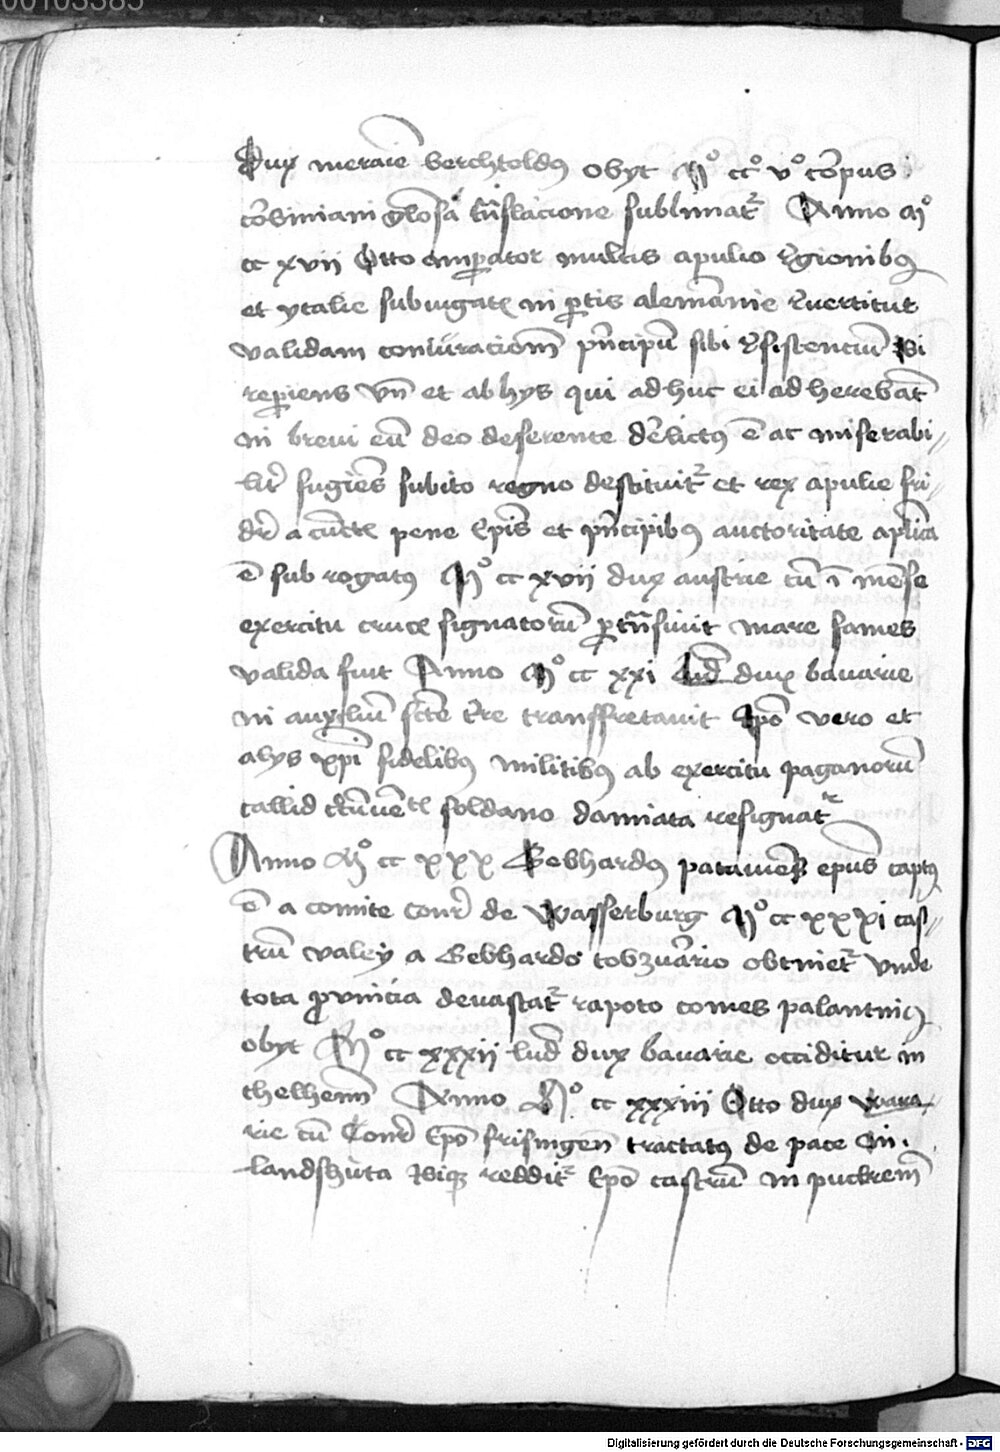 00103385
Dux meranie berchtoldꝰ obyt Mͦ ccͦ vͦ corpus
corbiniani gloſa tn̄ſlacione ſublimatᷣ Anno Mͦ
cc xvii Otto imꝑator multis apulie regionibꝰ
et ytalie ſubiugatꝭ in ꝑtis alemānie reuertitur
validam coniuracionē pn̄cipū ſibi reſiſtenciū ibi
repiens vn̄ et ab hys qui adhuc ei adherebāt
in breui eū deo deferente derelictꝰ ē ac miſerabi-
litᷣ fugiēs ſubito regno deſtituitᷣ et rex apulie fri-
dr̄ a cunctꝭ pene epīs et pn̄cipibꝰ auctoritate aplica
ē ſub rogatꝰ Mͦ cc xvii dux auſtrie cū īmēſe
exercitu cruce ſignatorū ꝑtn̄ſiuit mare fames
valida fuit Anno Mͦ cc xxi lud̄ dux bauarie
in auxiliū ſcte tr̄e transffretauit Epō vero et
alys xp̄i fidelibꝰ militibꝰ ab exercitu paganorū
callid circūuētꝭ ſoldano damiata reſignatᷣ
Anno Mͦ cc xxx Gebhardꝰ patauień epūs captꝰ
ē a comite conr̄ de waſſerburg Mͦ cc xxxi caſ-
trū valey a Gebhardo tobzuario obtinetᷣ vnde
tota ꝓuincia deuaſtatᷣ rapoto comes palantinꝰ
obyt Mͦ cc xxxii lud̄ dux bauarie occiditur in
chelhem̄ Anno Mͦ cc xxxiiii Otto dux wava
rie cū Conr̄ Epō friſingen̄ tractatꝰ de pace in
landshuta ibiqꝫ redditᷣ Epō caſtrū in puechrem̄
Digitalisierung gefördert durch die Deutsche Forschungsgemeinschaft - DFG